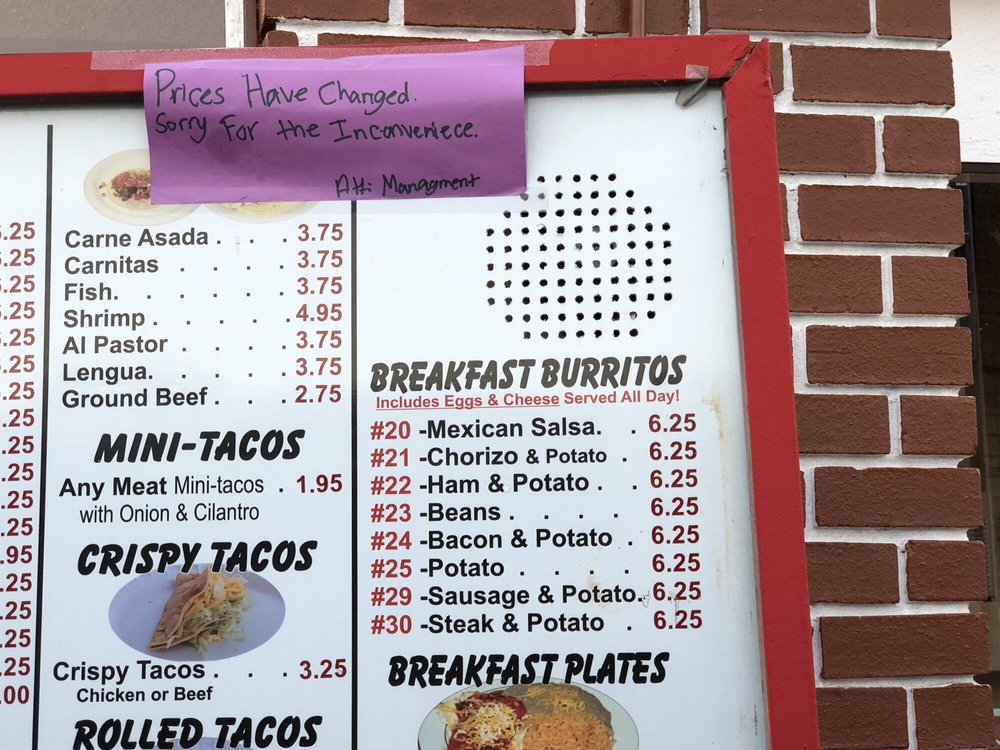 Prices Have Changed.
Sorry For the Inconveniece.
Att: Managment
.25
.25
.25
.25
.25
.25
.25
.25
.25
.25
.25
.25
.95
.25
.25
.25
.25
.00
Carne Asada . . . 3.75
Carnitas . . . . 3.75
Fish. . . . . . 3.75
Shrimp . . . . . 4.95
Al Pastor . . . . 3.75
Lengua. . . . . 3.75
Ground Beef . . . 2.75
MINI-TACOS
Any Meat Mini-tacos . 1.95
with Onion & Cilantro
CRISPY TACOS
Crispy Tacos . . . 3.25
Chicken or Beef
ROLLED TACOS
BREAKFAST BURRITOS
Includes Eggs & Cheese Served All Day!
#20 -Mexican Salsa. . 6.25
#21 -Chorizo & Potato . 6.25
#22 -Ham & Potato . . 6.25
#23 -Beans . . . . 6.25
#24 -Bacon & Potato . 6.25
#25 -Potato . . . . 6.25
#29 -Sausage & Potato. 6.25
#30 -Steak & Potato . 6.25
BREAKFAST PLATES